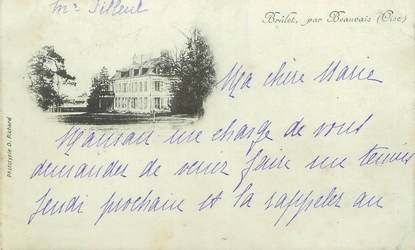 Mr Tilleul
Brûlet, par Beauvais (Oise)
Ma chère Marie
Maman me charge de vous
demander de venir faire un tennis
jeudi prochain et la rappeler au
Phototypie D. Richard